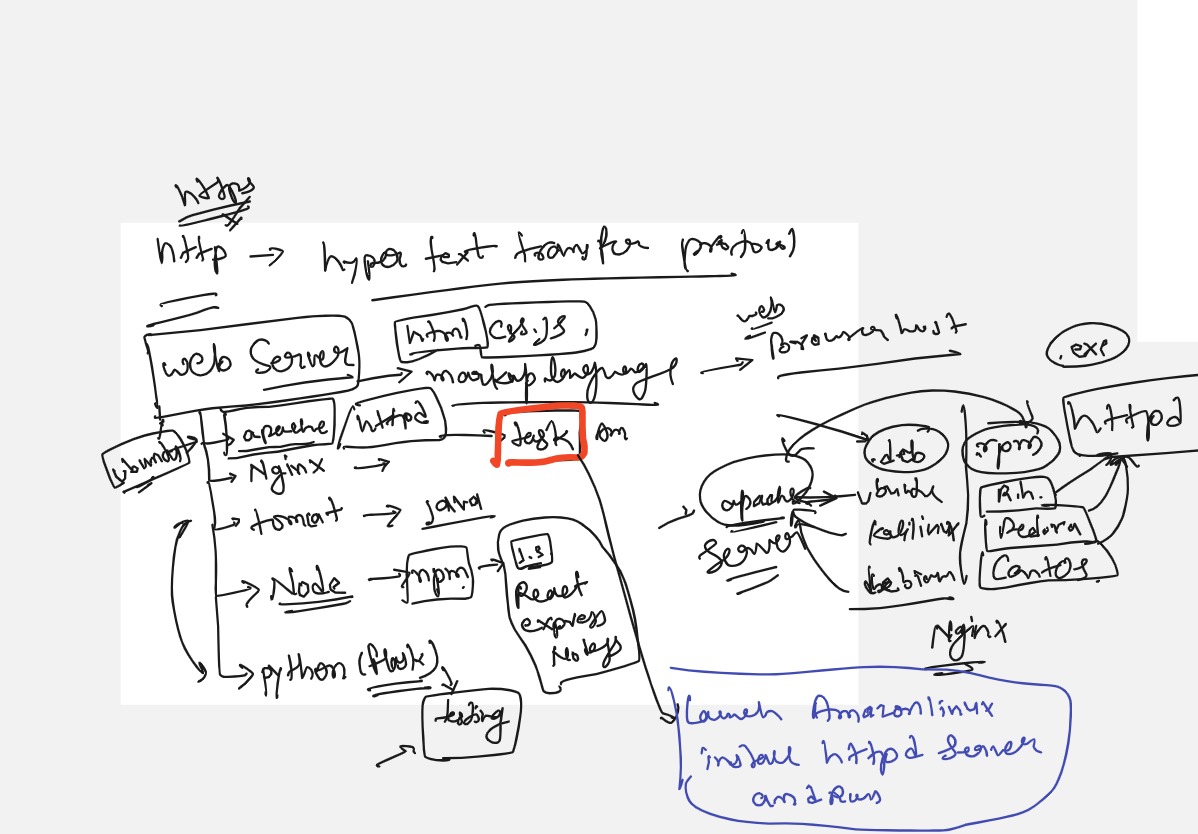 https
http → hyper text transfer protocol
web Server
html css.js.
markup language → web Browser host
.exe
ubuntu
apache httpd → task Am
Nginx →
tomcat → java
Node → npm → J.S
React
express
Nodejs
python (flask)
testing
apache
Server
.deb
ubuntu
kalilinux
debian
.rpm
R.h.
Fedora
CentOS
httpd
Nginx
Launch Amazonlinux
install httpd Server
and Run